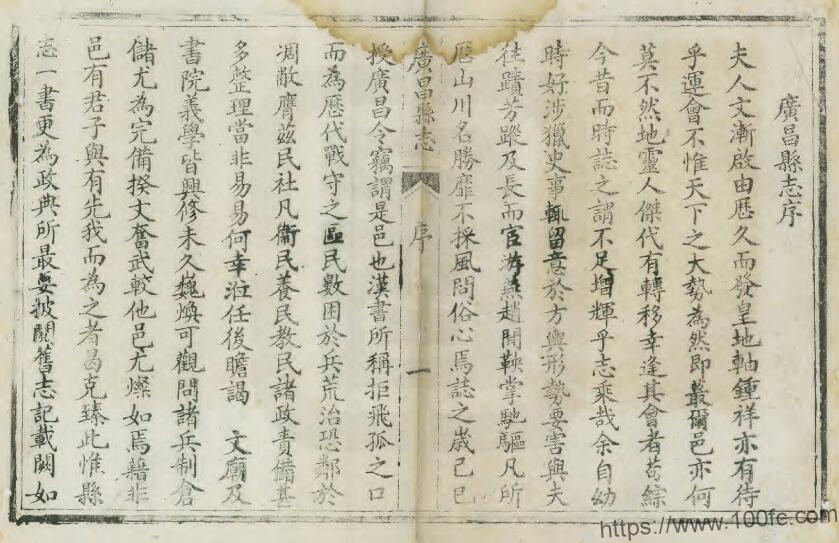 廣昌縣志序
夫人文漸啟由歷久而發皇地軸鍾祥亦有待
乎運會不惟天下之大勢為然即蕞爾邑亦何
莫不然地靈人傑代有轉移幸逢其會者苟綜
今昔而時誌之謂不足增輝乎志乘哉余自幼
時好涉獵史事輒留意於方輿形勢要害與夫
往蹟芳蹤及長而宦游燕趙閒鞅掌馳驅凡所
歷山川名勝靡不採風問俗心焉誌之歲己巳
廣昌縣志
序
一
授廣昌令竊謂是邑也漢書所稱拒飛狐之口
而為歷代戰守之區民數困於兵荒治恐鄰於
凋敝膺茲民社凡衞民養民教民諸政責備甚
多整理當非易易何幸涖任後瞻謁 文廟及
書院義學皆興修未久巍煥可觀問諸兵制倉
儲尤為完備揆文奮武較他邑尤燦如焉藉非
邑有君子與有先我而為之者曷克臻此惟縣
志一書更為政典所最要披閱舊志記載闕如
https://www.100fc.com